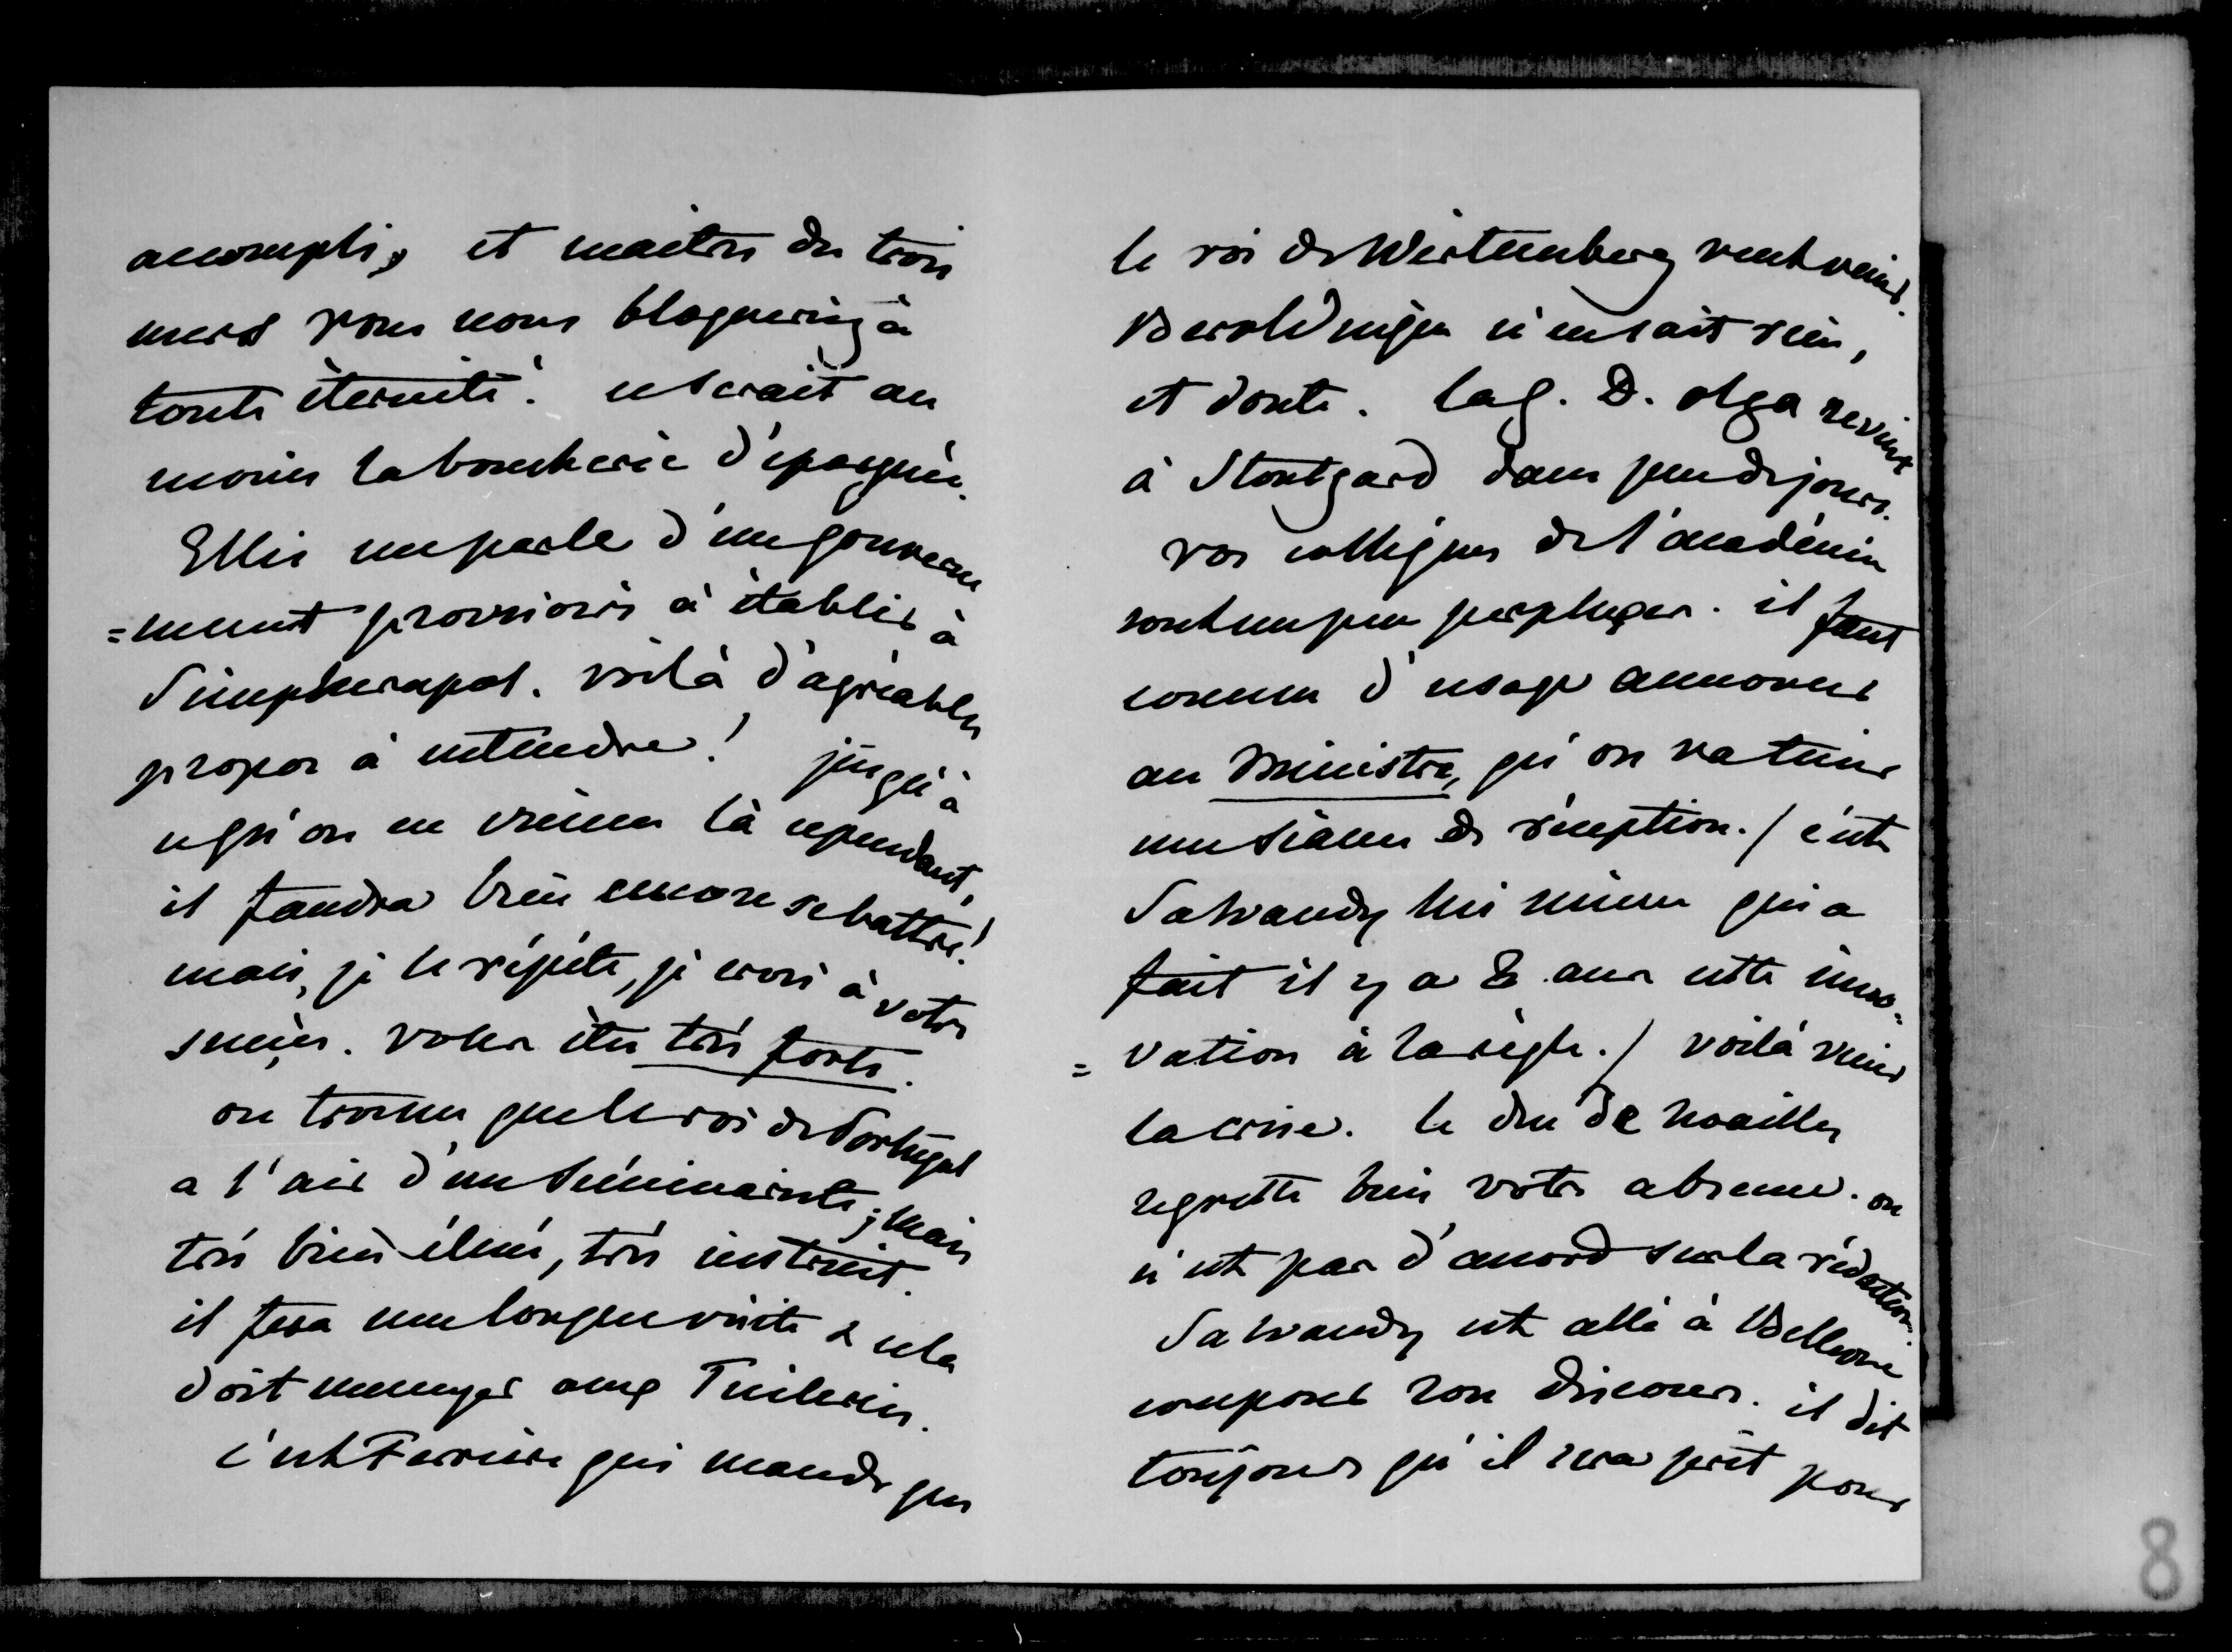 accomplis, et maitre des trois
mers vous nous bloqueriez à
toute éternité. ce serait au
moins la boucherie d'épargnée.
Ellice me parle d'un gouverne
=ment provisoire à établir à
Simpheropol. voilà d'agréables
propos à entendre! jusqu'à
ce qu'on en vienne là cependant,
il faudra bien encore se battre!
mais, je le répète, je crois à votre
succès. vous êtes très forts.
on trouve que le roi de Portugal
a l'air d'un séminariste; mais
très bien élevé, très instruit.
il fera une longue visite & cela
doit ennuyer aux Tuileries.
c'est Ferrière qui mande que
le roi de Würtemberg veut venir.
Beroldingen n'en sait rien,
et doute. la g. D. Olga revient
à Stoutgard dans peu de jours.
vos collègues de l'académie
sont un peu perplexes. il faut
comme d'usage annoncer
au Ministre, qu'on va tenir
une séance de réception. / c'est
Salvandy lui même qui a
fait il y a 8 ans cette inno=
=vation à la règle. / voilà venir
la crise. le duc de Noailles
regrette bien votre absence. on
n'est pas d'accord sur la rédaction.
Salvandy est allé à Bellevue
composer son discours. il dit
toujours qu'il sera prêt pour
8